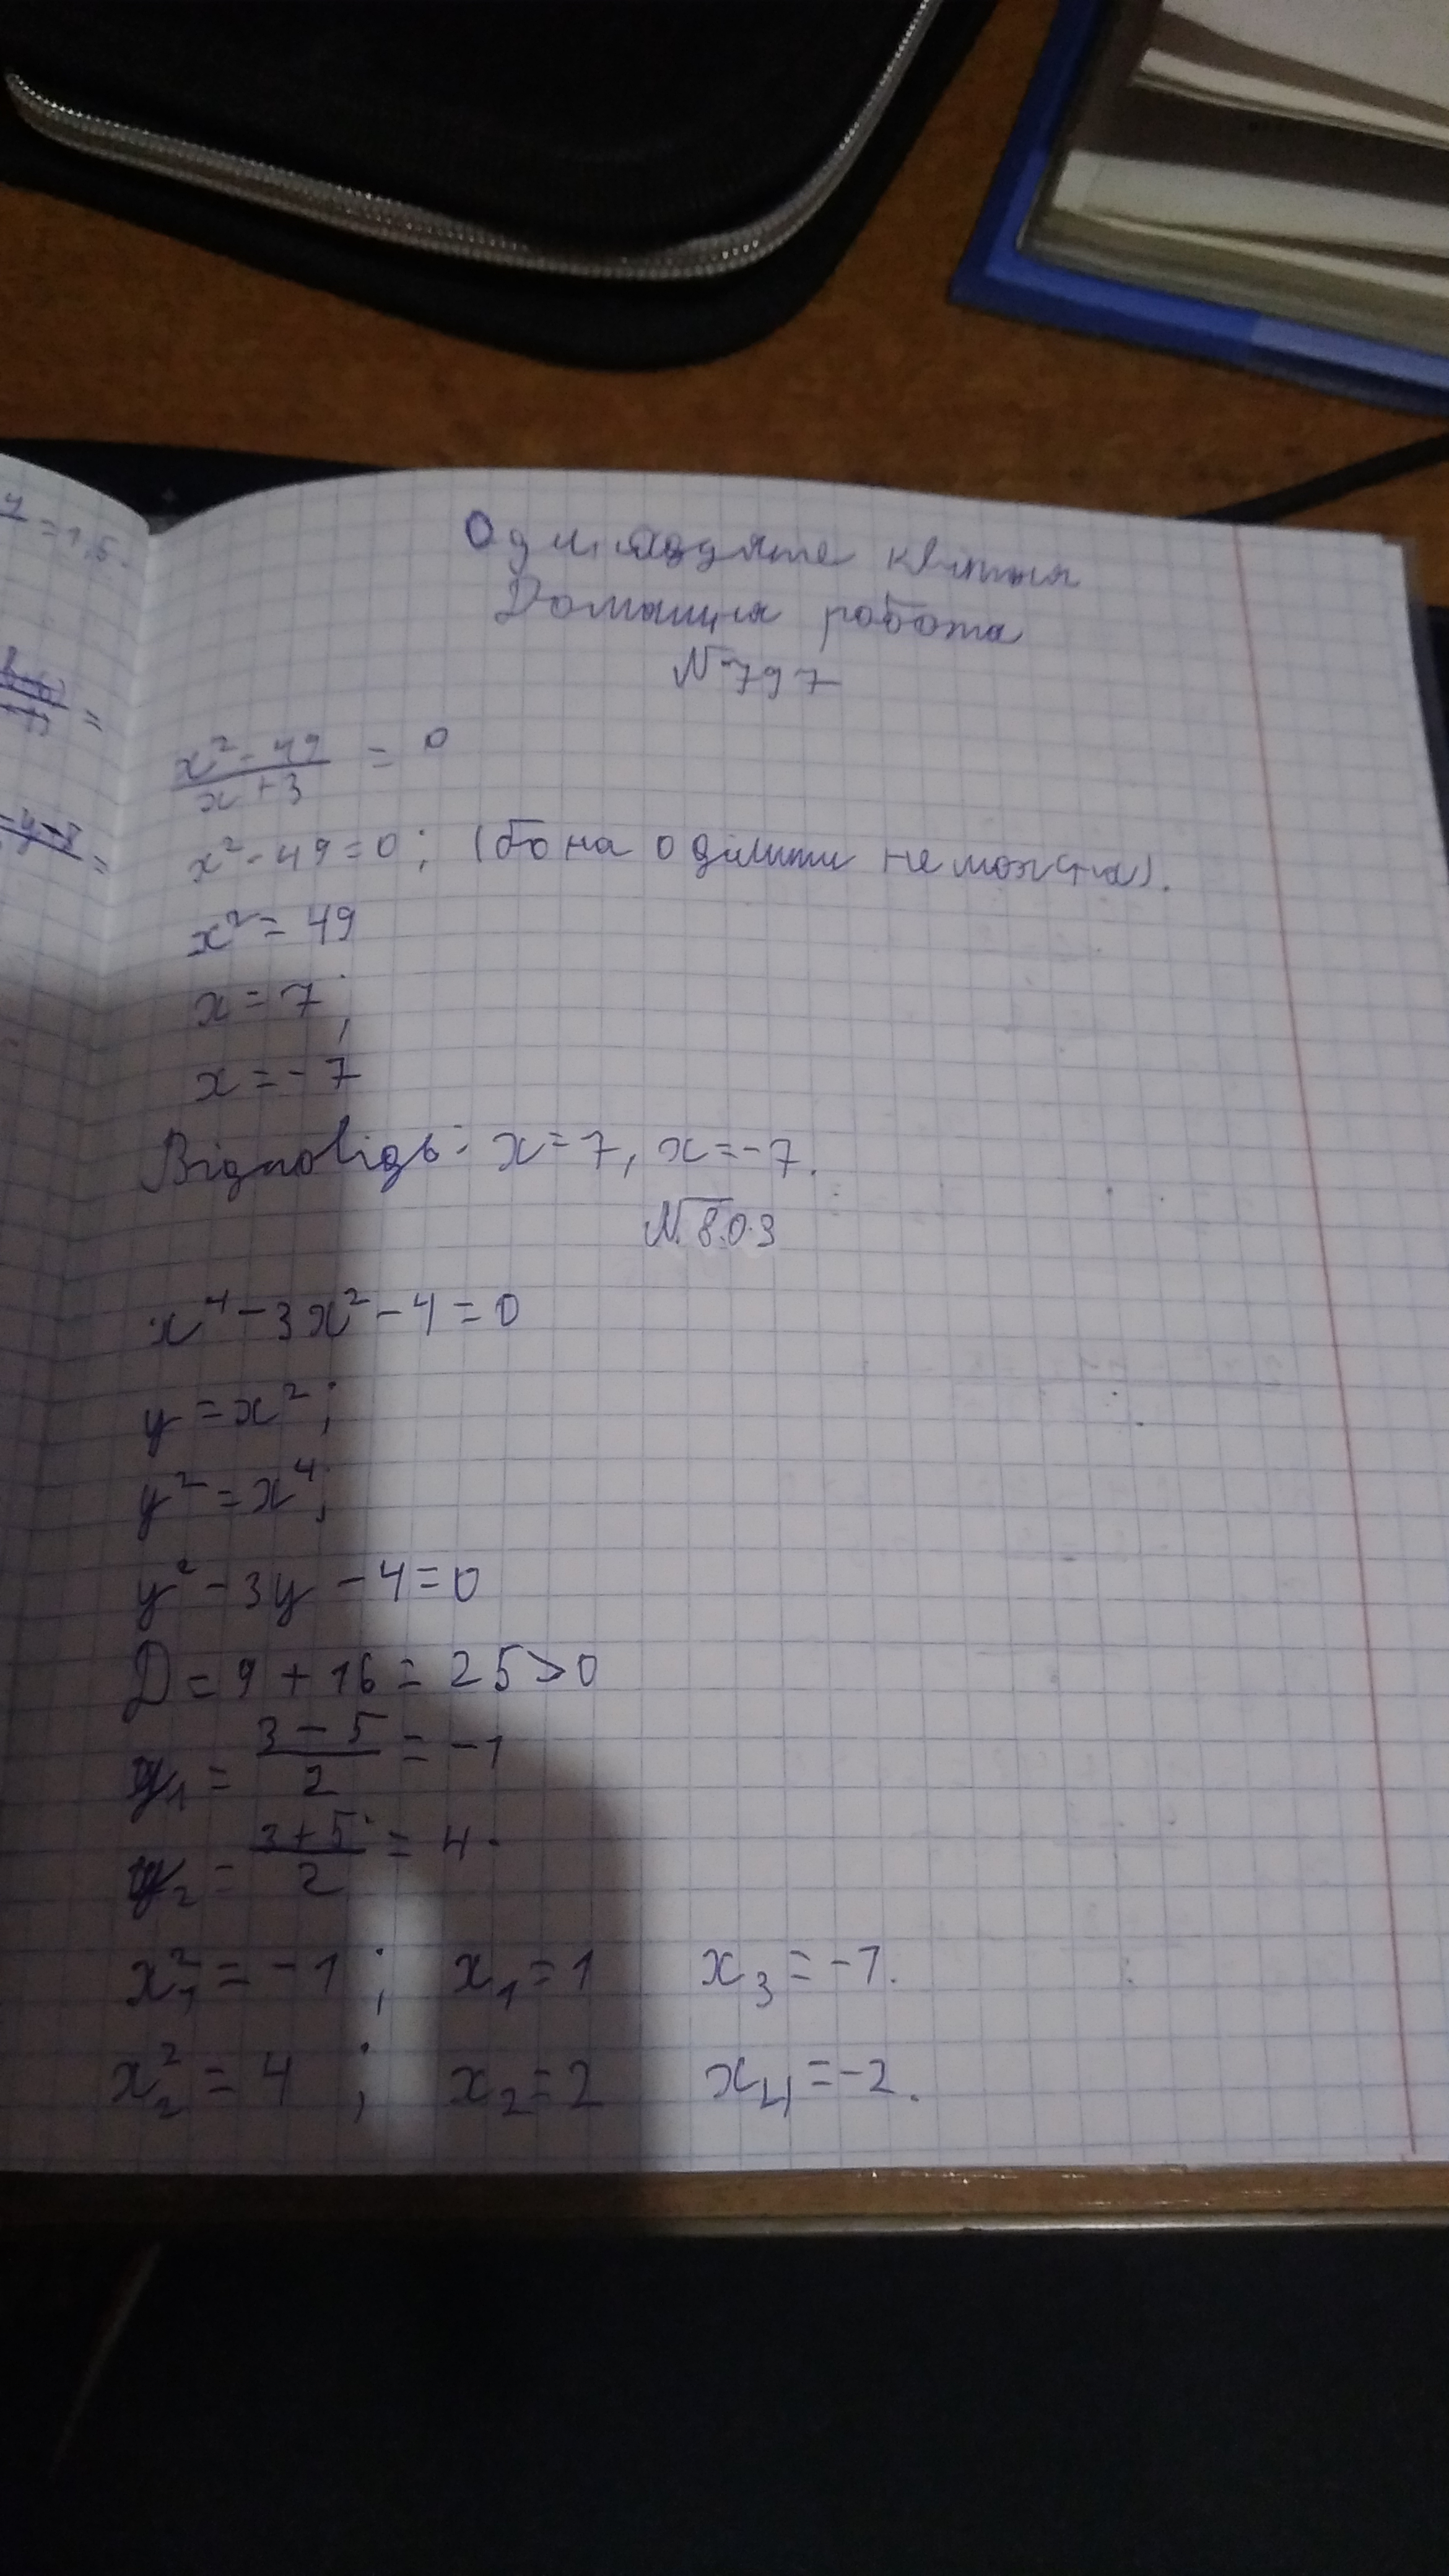 Одинадцяте квітня
Домашня робота
№797
x² - 49 / x + 3 = 0
x² - 49 = 0; (бо на 0 ділити не можна).
x² = 49
x = 7;
x = -7
Відповідь: x = 7, x = -7.
№803
x⁴ - 3x² - 4 = 0
y = x²;
y² = x⁴;
y² - 3y - 4 = 0
D = 9 + 16 = 25 > 0
y₁ = 3 - 5 / 2 = -1
y₂ = 3 + 5 / 2 = 4.
x₁² = -1; x₁ = 1 x₃ = -1.
x₂² = 4; x₂ = 2 x₄ = -2.